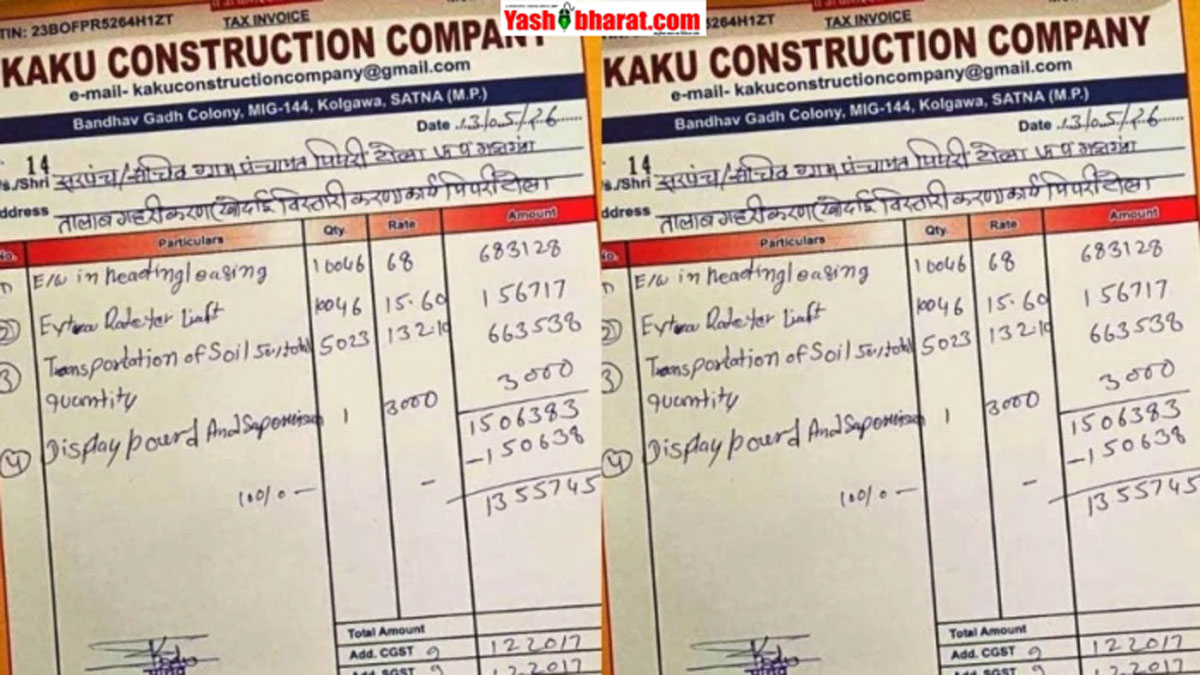 Yashbharat.com
TIN: 23BOFPR5264H1ZT TAX INVOICE
KAKU CONSTRUCTION COMPANY
e-mail- kakuconstructioncompany@gmail.com
Bandhav Gadh Colony, MIG-144, Kolgawa, SATNA (M.P.)
Date 13/05/26
14
s./Shri सरपंच/सचिव ग्राम पंचायत पिपरी टोला
ddress तालाब गहरीकरण खोदाई विस्तारीकरण कार्य पिपरीटोला
No. Particulars Qty. Rate Amount
1) E/w in heading leasing 10046 68 683128
2) Extra Rate for Lift 10046 15.60 156717
3) Transportation of Soil 50% total 5023 132.10 663538
quantity
4) Display pourd And 1 3000 3000
1506383
10% - - -150638
1355745
Total Amount
Add. CGST 9 122017
Add. SGST 9 122017
5264H1ZT TAX INVOICE
KAKU CONSTRUCTION COMPANY
e-mail- kakuconstructioncompany@gmail.com
Bandhav Gadh Colony, MIG-144, Kolgawa, SATNA (M.P.)
Date 13/05/26
14
s./Shri सरपंच/सचिव ग्राम पंचायत पिपरी टोला
ddress तालाब गहरीकरण खोदाई विस्तारीकरण कार्य पिपरीटोला
No. Particulars Qty. Rate Amount
1) E/w in heading leasing 10046 68 683128
2) Extra Rate for Lift 10046 15.60 156717
3) Transportation of Soil 50% total 5023 132.10 663538
quantity
4) Display pourd And 1 3000 3000
1506383
10% - - -150638
1355745
Total Amount
Add. CGST 9 122017
Add. SGST 9 122017